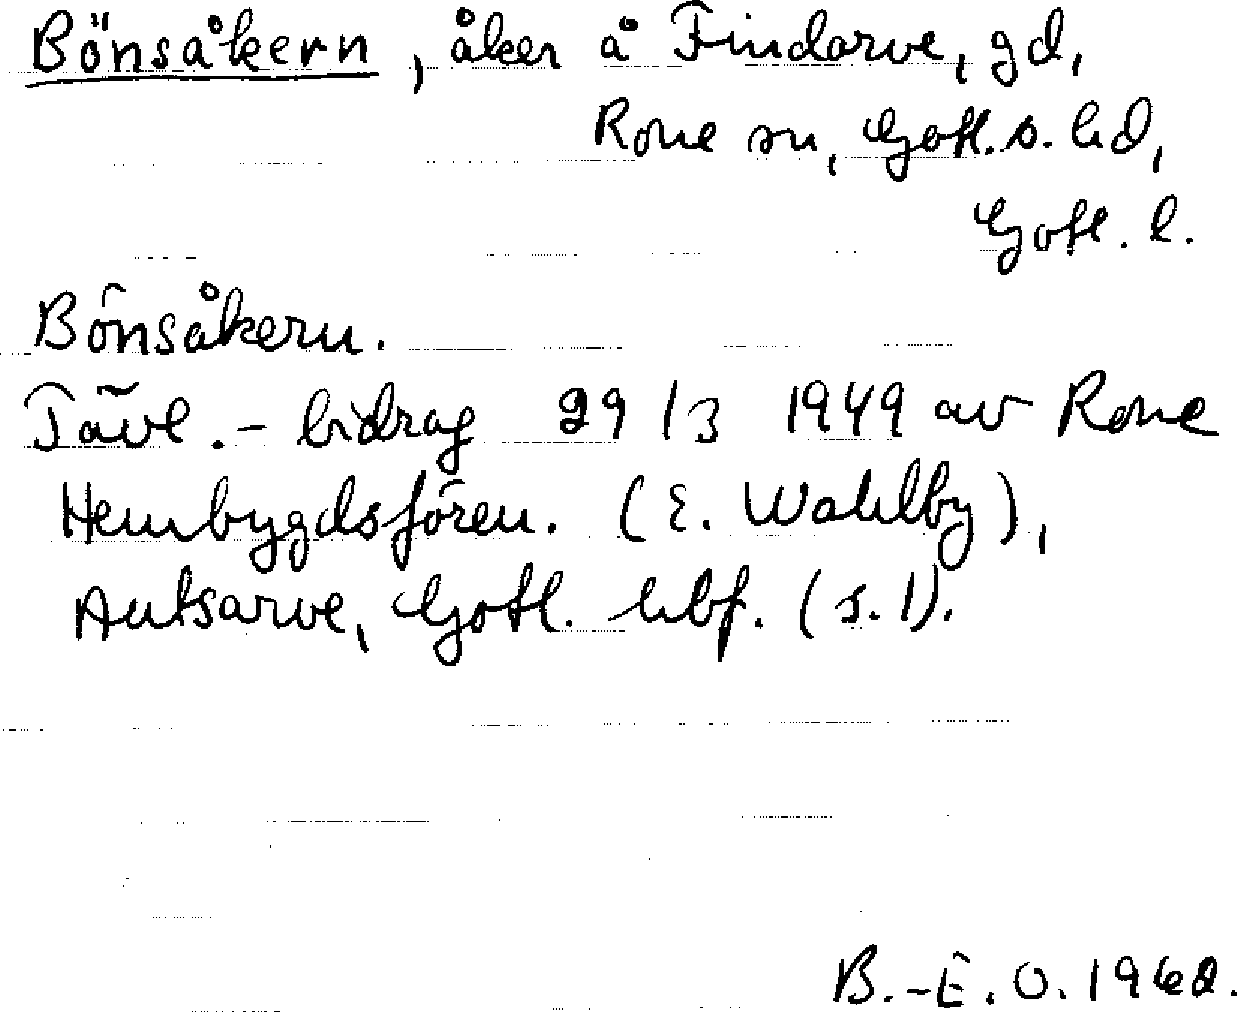 Bönsåkern, åker å Findarve, gd,
Rone sn, Gotl. s. hd,
Gotl. l.
Bönsåkern.
Tävl.- bidrag 29/3 1949 av Rone
Hembygdsfören. (E. Wahlby),
Autsarve, Gotl. hbf. (s. 1).
B.-E. O. 1962.